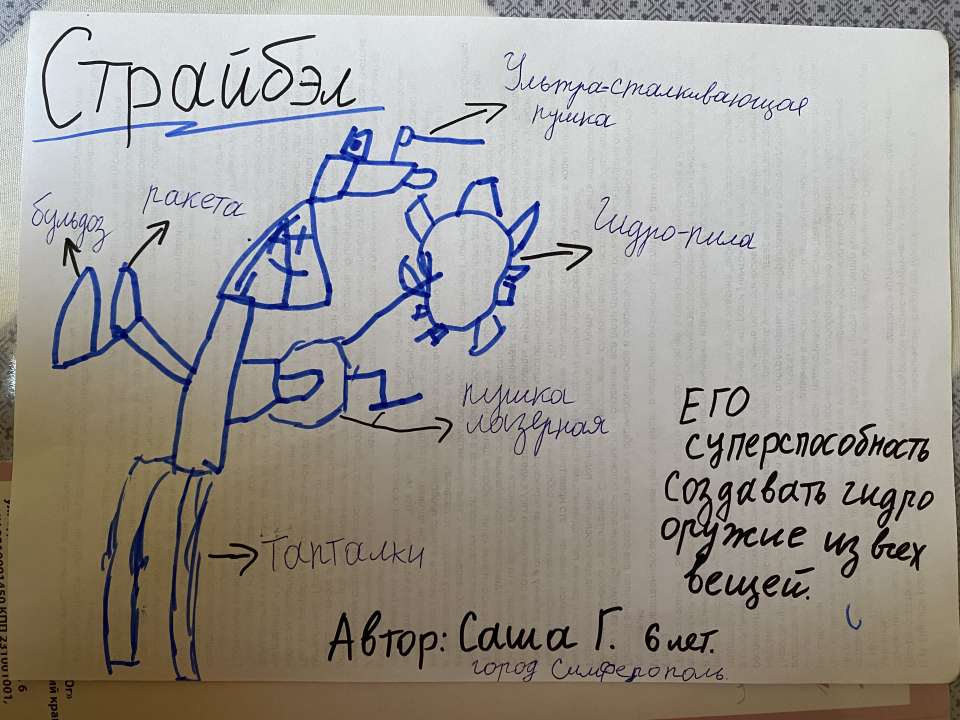 Страйбэл
Ультра-сталкивающая
пушка
бульдоз
ракета
Гидро-пила
пушка
лазерная
Тапталки
ЕГО
суперспособность
создавать гидро
оружие из всех
вещей.
Автор: Саша Г. 6 лет.
город Симферополь.